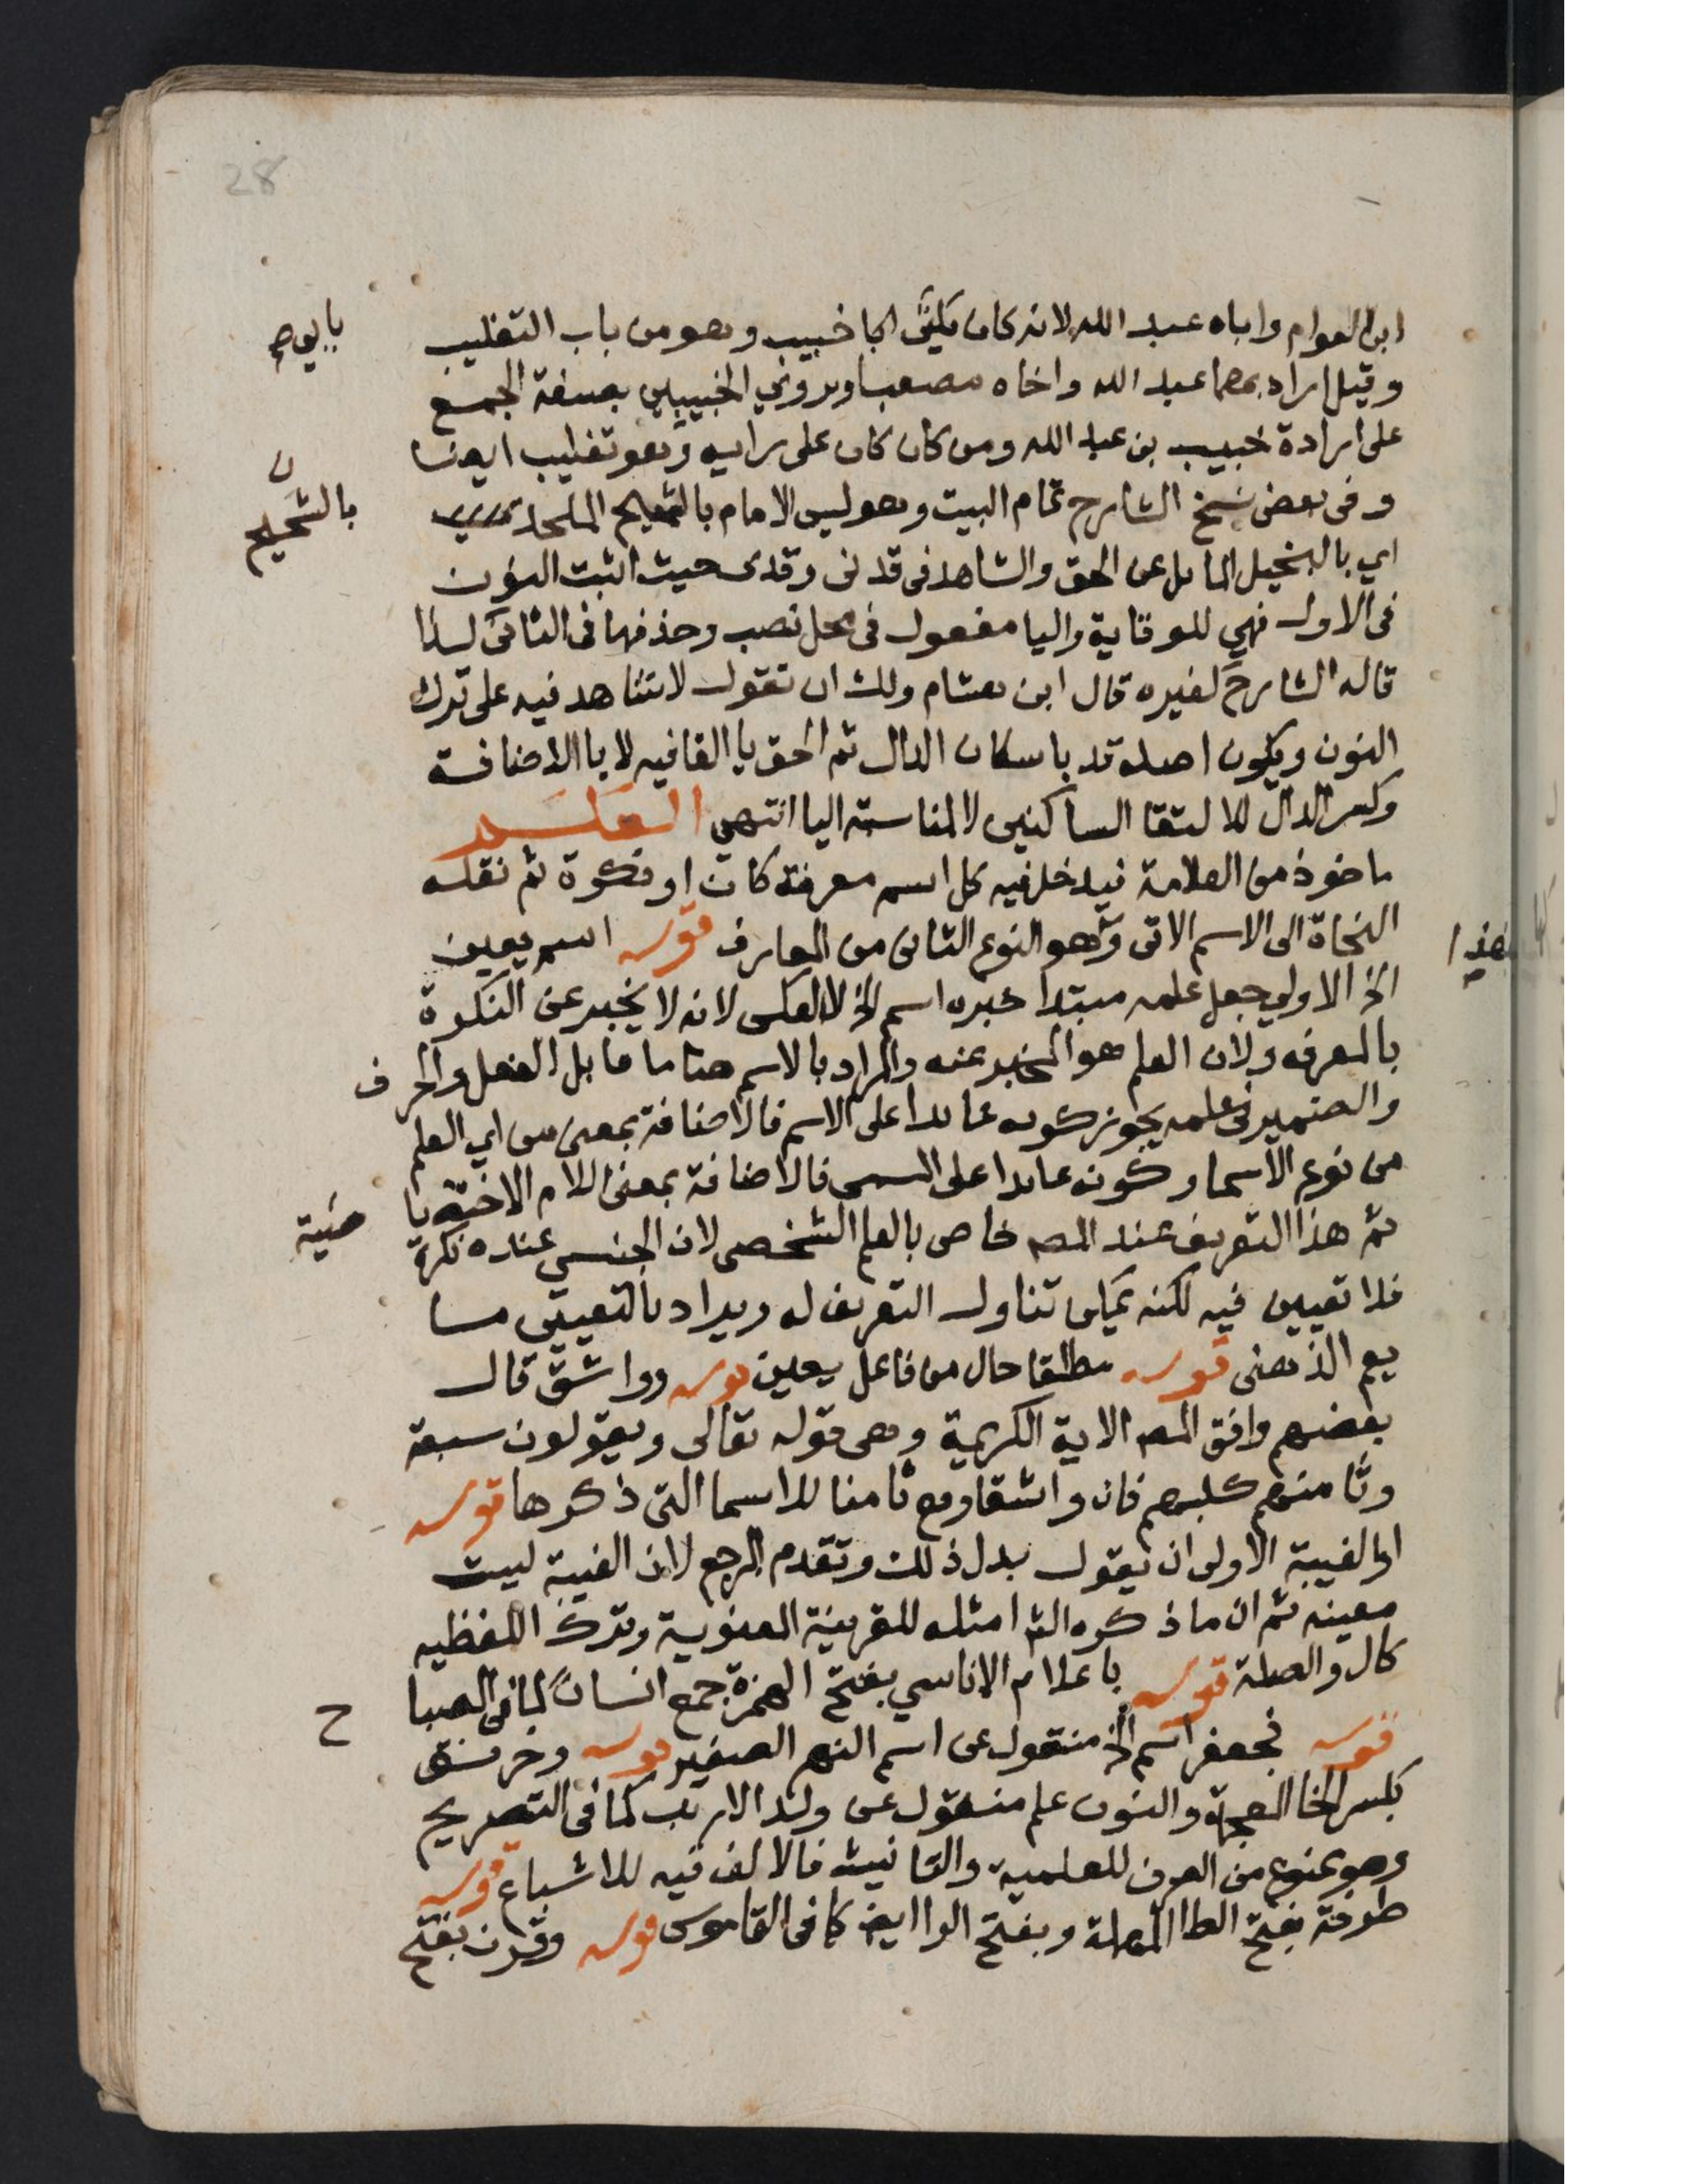 ابن العوام واباه عبد الله لانه كان يكنى ابا خبيب وهو من باب التغليب
وقيل اراد بهما عبد الله واخاه مصعبا ويروي الخبيبين بصيغة الجمع
على ارادة خبيب بن عبد الله ومن كان كان على رايه وهو تغليب ايضا
وفى بعض نسخ الشارح تمام البيت وهو ليس الامام بالشحيح الملحد
بالشحيح
اي بالبخيل المايل عن الحق والشاهد فى قدنى وقدى حيث اثبت النون
فى الاول فهي للوقاية واليا مفعول فى محل نصب وحذفها فى الثانى لذا
قاله الشارح كغيره قال ابن هشام ولك ان تقول لا شاهد فيه على ترك
النون ويكون اصله قد باسكان الدال ثم الحق يا القافيه لا يا الاضافة
وكسر الدال للالتقا الساكنين لا لمناسبة اليا انتهي العلم
ماخوذ من العلامة فيدخل فيه كل اسم معرفة كان او نكرة ثم نقله
النحاة الى الاسم الاتى وهو النوع الثانى من المعارف قوله اسم يعين
الخ الاولى جعل علمه مبتدا خبره اسم الخ لا العكس لانه لا يخبر عن النكرة
بالمعرفه ولان العلم هو المخبر عنه والمراد بالاسم هنا ما قابل الفعل والحرف
والضمير فى علمه يجوز كونه عايدا على الاسم فالاضافة بمعنى من اي العلم
من نوع الاسما وكونه عايدا على المسمى فالاضافة بمعنى اللام الاختصا
صية
ثم هذا التعريف عند المص خاص بالعلم الشخصى لان الجنسي عنده نكرة
فلا تعيين فيه لكنه يمكن تناول التعريف له ويراد بالتعيين ما
يعم الذهنى قوله مطلقا حال من فاعل يعين قوله وواشق قال
بعضهم وافق المص الاية الكريمة وهى قوله تعالى ويقولون سبعة
وثامنهم كلبهم فان واشقا وقع ثامنا للاسما التى ذكرها قوله
او الغيبة الاولى ان يقول بدل ذلك وتقدم المرجع لان الغيبة ليست
معينه ثم ان ما ذكره الش امثله للقرينة المعنوية وترك اللفظيه
كال والصلة قوله باعلام الاناسي بفتح الهمزة جمع انسان كما فى المصبا
ح
قوله فجعفر اسم الخ منقول عن اسم النهر الصغير قوله وخرنق
بكسر الخا المعجمة والنون علم منقول عن ولد الارنب كما فى التصريح
وهو ممنوع من الصرف للعلمية والتانيث فالالف فيه للاشباع قوله
طرفة بفتح الطا المهملة وبفتح الرا ايض كما فى القاموس قوله وقرن بفتح